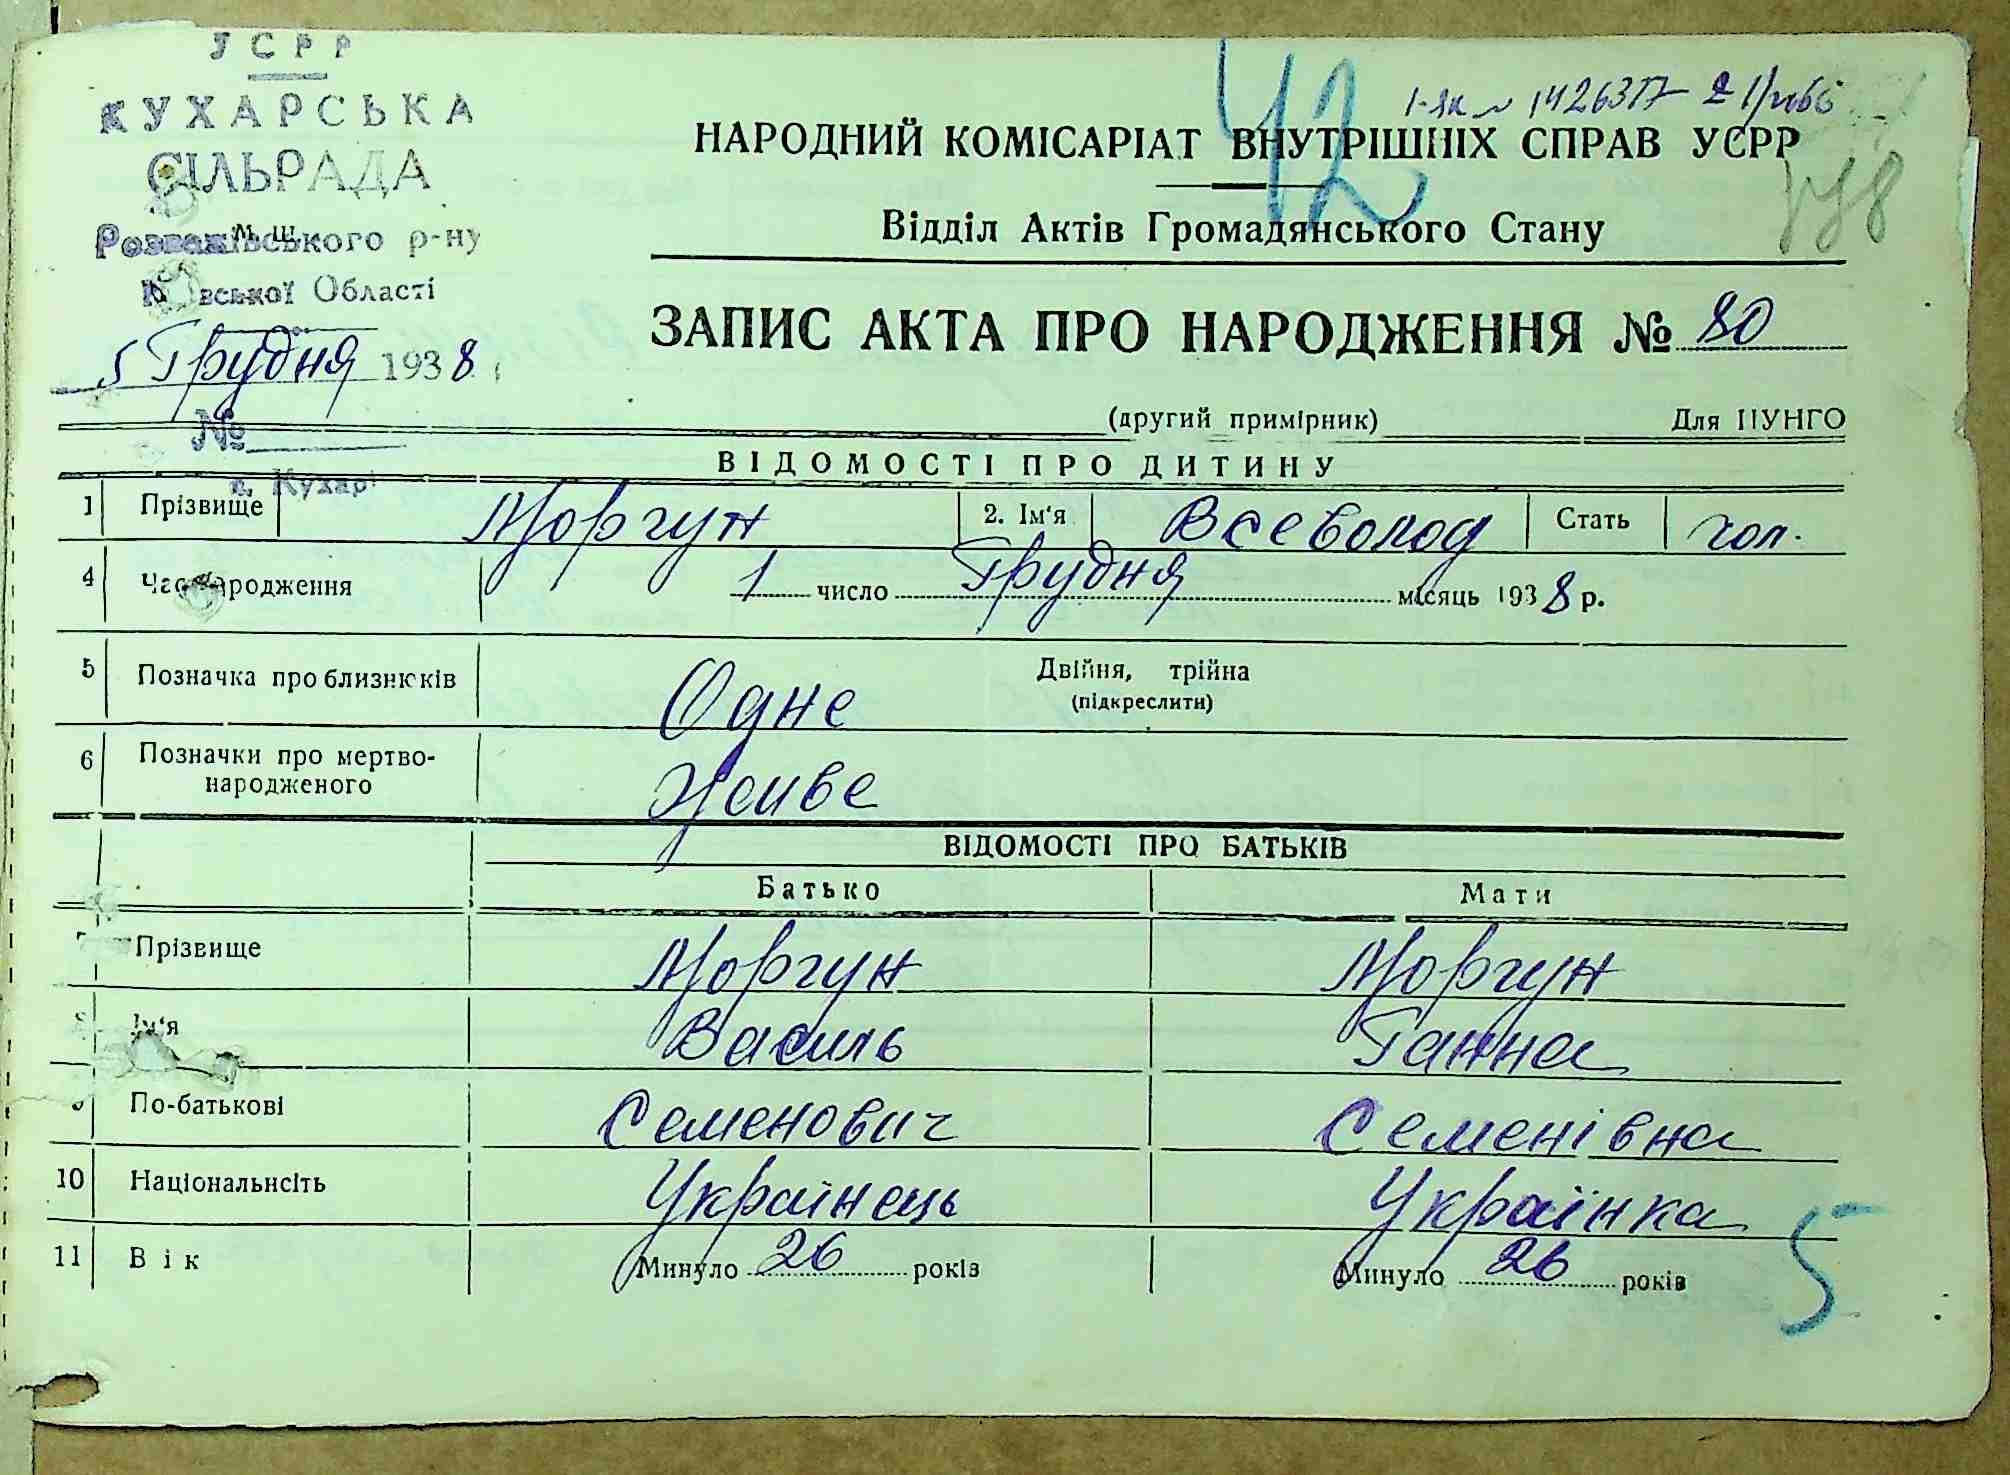 УСРР
КУХАРСЬКА
СІЛЬРАДА
Розважівського р-ну
вської Області
5 Грудня 1938
№
с. Кухарі
42
НАРОДНИЙ КОМІСАРІАТ ВНУТРІШНІХ СПРАВ УСРР
Відділ Актів Громадянського Стану
ЗАПИС АКТА ПРО НАРОДЖЕННЯ № 80
(другий примірник) Для ПУНГО
ВІДОМОСТІ ПРО ДИТИНУ
1 Прізвище Моргун 2. Ім'я Всеволод Стать чол.
4 Час народження 1 число Грудня місяць 1938 р.
5 Позначка про близнюків Одне Двійня, трійна
(підкреслити)
6 Позначки про мертво-
народженого Живе
ВІДОМОСТІ ПРО БАТЬКІВ
Батько Мати
7 Прізвище Моргун Моргун
8 Ім'я Василь Ганна
9 По-батькові Семенович Семенівна
10 Національнсіть Українець Українка
11 Вік Минуло 26 років Минуло 26 років
5